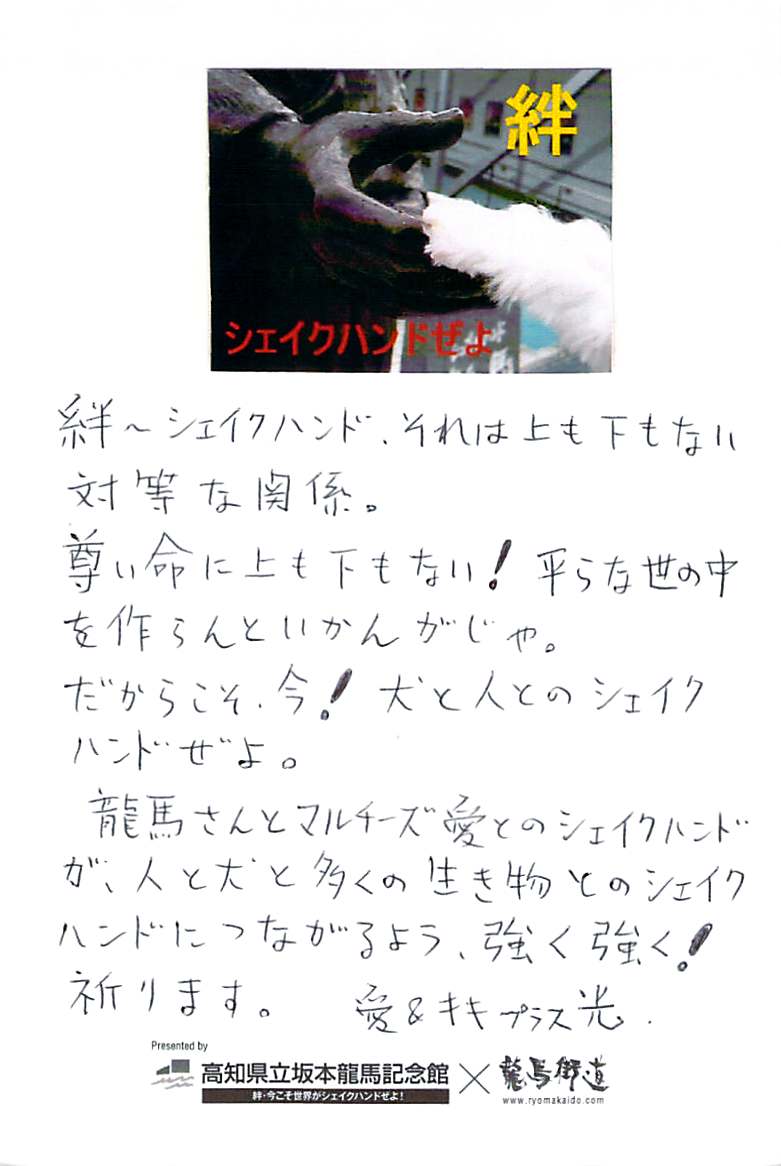 絆
シェイクハンドぜよ
絆～シェイクハンド、それは上も下もない
対等な関係。
尊い命に上も下もない！平らな世の中
を作らんといかんがじゃ。
だからこそ、今！犬と人とのシェイク
ハンドぜよ。
龍馬さんとマルチーズ愛とのシェイクハンド
が、人と犬と多くの生き物とのシェイク
ハンドにつながるよう、強く強く！
祈ります。 愛&キキプラス光.
Presented by
高知県立坂本龍馬記念館×龍馬街道
絆・今こそ世界がシェイクハンドぜよ！
www.ryomakaido.com